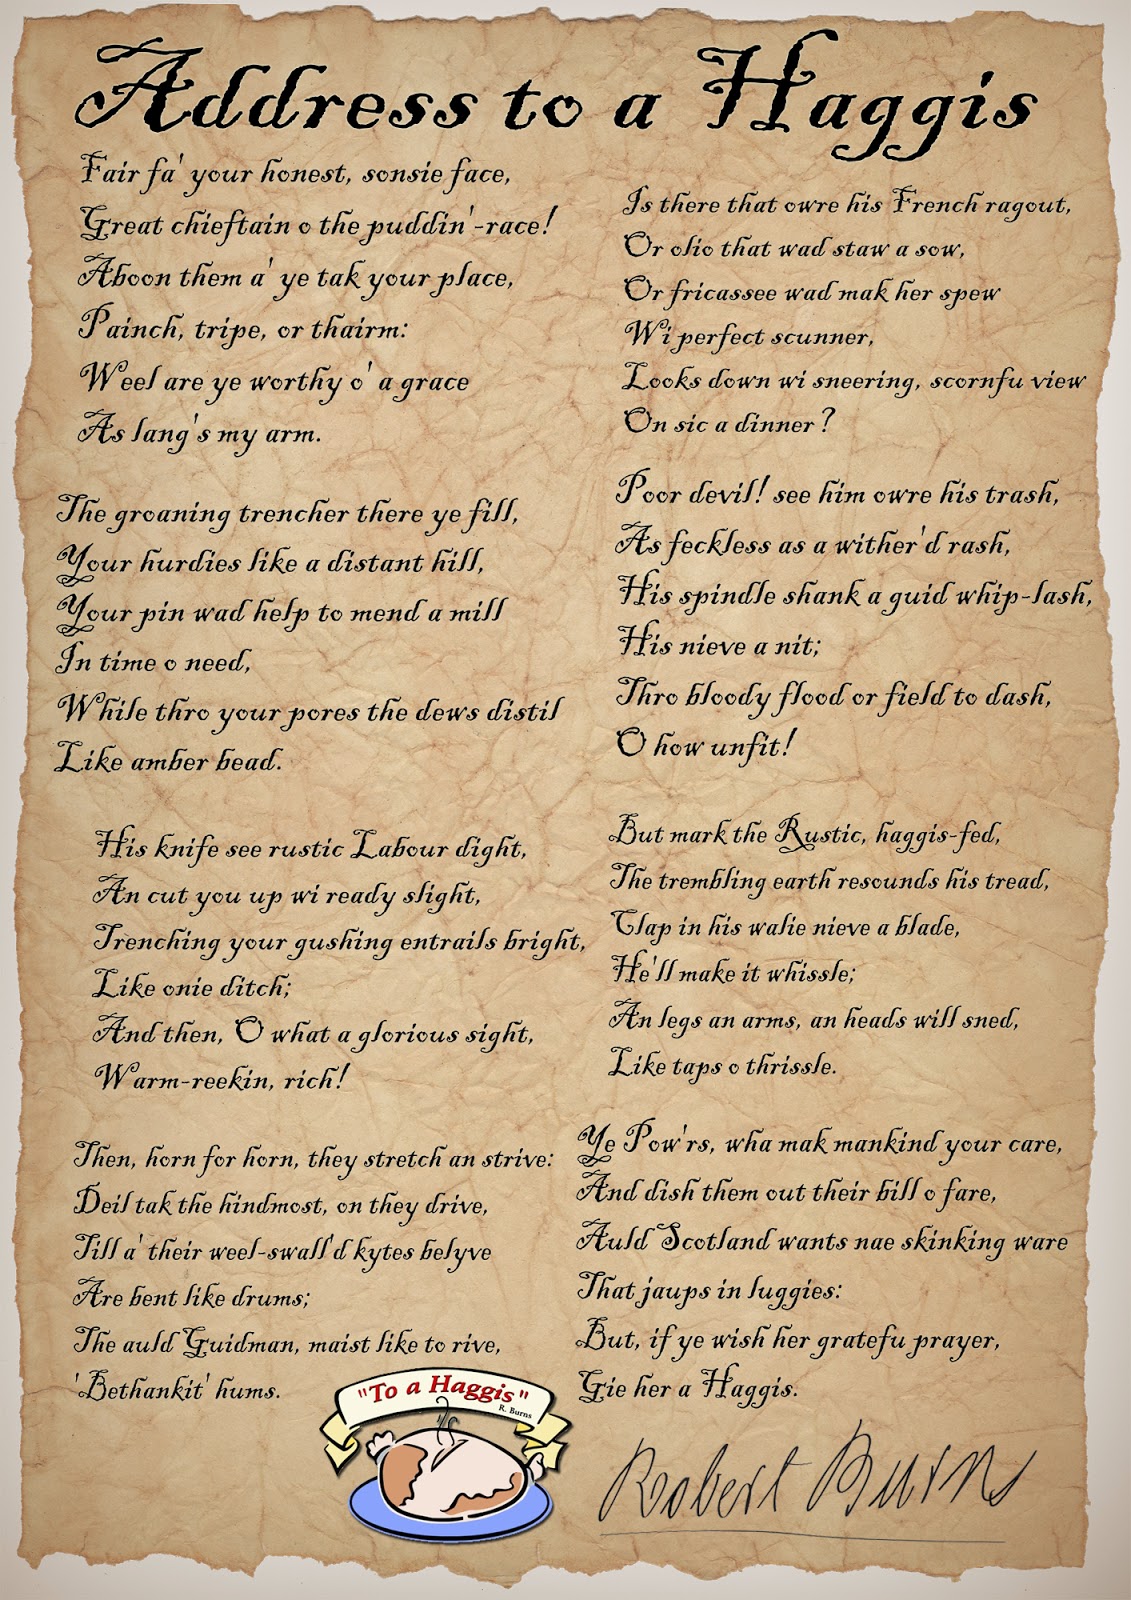 Address to a Haggis
Fair fa' your honest, sonsie face,
Great chieftain o the puddin'-race!
Aboon them a' ye tak your place,
Painch, tripe, or thairm:
Weel are ye worthy o' a grace
As lang's my arm.
The groaning trencher there ye fill,
Your hurdies like a distant hill,
Your pin wad help to mend a mill
In time o need,
While thro your pores the dews distil
Like amber bead.
His knife see rustic Labour dight,
An cut you up wi ready slight,
Trenching your gushing entrails bright,
Like onie ditch;
And then, O what a glorious sight,
Warm-reekin, rich!
Then, horn for horn, they stretch an strive:
Deil tak the hindmost, on they drive,
Till a' their weel-swall'd kytes belyve
Are bent like drums;
The auld Guidman, maist like to rive,
'Bethankit' hums.
Is there that owre his French ragout,
Or olio that wad staw a sow,
Or fricassee wad mak her spew
Wi perfect scunner,
Looks down wi sneering, scornfu view
On sic a dinner?
Poor devil! see him owre his trash,
As feckless as a wither'd rash,
His spindle shank a guid whip-lash,
His nieve a nit;
Thro bloody flood or field to dash,
O how unfit!
But mark the Rustic, haggis-fed,
The trembling earth resounds his tread,
Clap in his walie nieve a blade,
He'll make it whissle;
An legs an arms, an heads will sned,
Like taps o thrissle.
Ye Pow'rs, wha mak mankind your care,
And dish them out their bill o fare,
Auld Scotland wants nae skinking ware
That jaups in luggies:
But, if ye wish her gratefu prayer,
Gie her a Haggis.
"To a Haggis"
R. Burns
Robert Burns